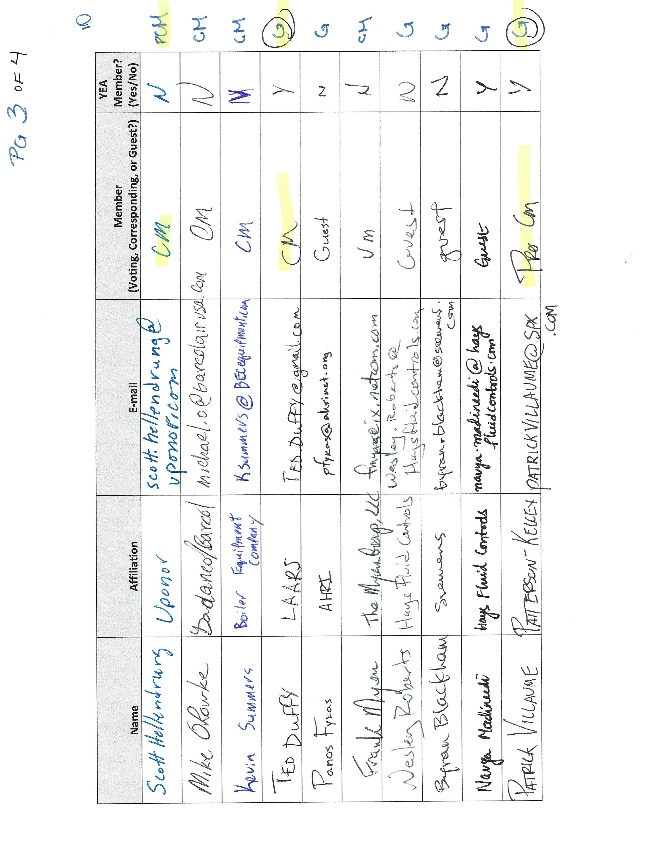 PG 3 OF 4
10
Name Affiliation E-mail Member (Voting, Corresponding, or Guest?) YEA Member? (Yes/No)
Scott Hellendrung Uponor scott.hellendrung@ uponor.com CM N PCM
Mike O'Rourke CM N CM
Kevin Summers Boiler Equipment Company Ksummers@BECequipment.com CM N CM
TED DUFFY LAARS TED.DUFFY@gmail.com CM Y G
Panos Fykas AHRI pfykas@ahrinet.org Guest N G
Frank Myers The Myers Group, LLC Vm N CM
Wesley Roberts Hays Fluid Controls Wesley.Roberts@ Haysfluidcontrols.com Guest N G
Byran Blackham Siemens byran.blackham@siemens.com guest N G
Navya Madineedi Hays Fluid Controls navya.madineedi@hays fluidcontrols.com Guest Y G
PATRICK VILLAUME PATTERSON-KELLEY PATRICKVILLAUME@SPX .COM Pro CM Y G